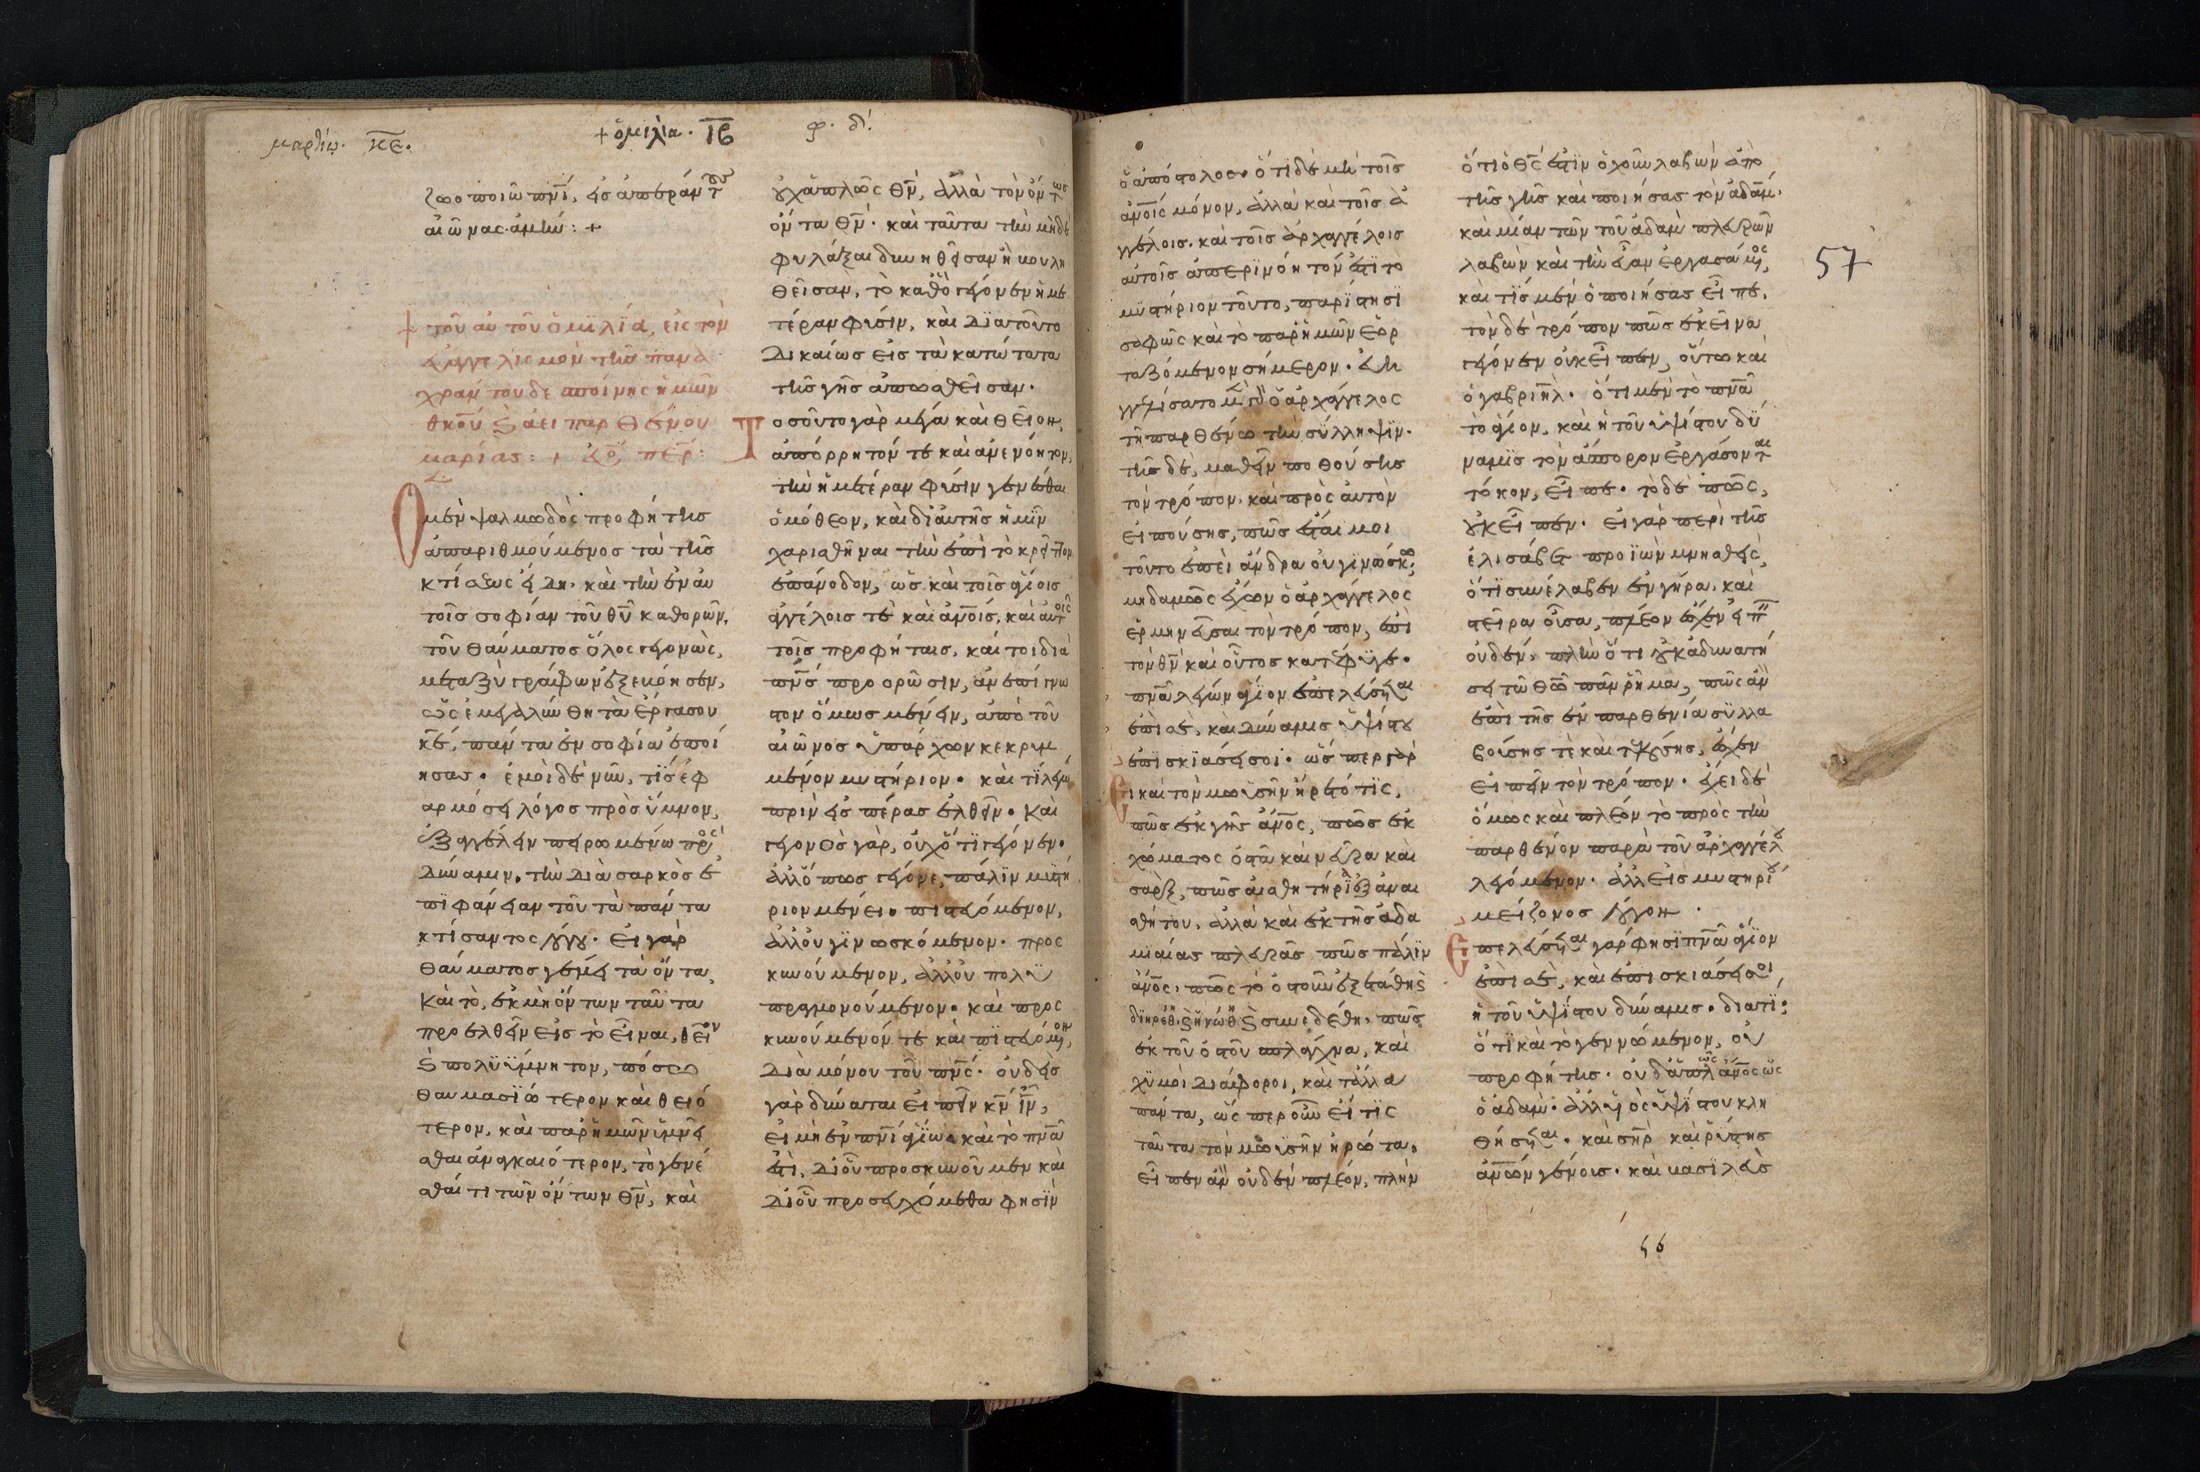 μαρτίω. κε.
+ ὁμιλία. ιβ
φ. δ!
ζωοποιῶ πνι, εἰς ἀπεράντους
αἰῶνας ἀμήν: +
+ τοῦ αὐτοῦ ὁμϊλΐα, εἰς τὸν
εὐαγγελισμὸν τῆς πανα
χράντου δεσποίνης ἡμῶν
θκου καὶ ἀειπαρθένου
μαρίας: + εὐ περ:
Ὁ μὲν ψαλμωδὸς προφήτης
ἀπαριθμούμενος τὰ τῆς
κτίσεως εἴδη. καὶ τὴν ἐν αὐ
τοῖς σοφίαν τοῦ θυ καθορῶν,
τοῦ θαύματος ὅλος γεγονὼς,
μεταξὺ γράφων ἐξεφώνησεν,
ὡς ἐμεγαλύνθη τὰ ἔργα σου
κε, πάντα ἐν σοφία ἐποί
ησας. ἐμοὶ δὲ νῦν, τίς ἐφ
αρμόσει λόγος πρὸς ὕμνον,
ἐξαγγέλειν πειρωμένω πρὸς
δύναμιν, τὴν διὰ σαρκὸς ἐ
πιφάνειαν τοῦ τὰ πάντα
κτίσαντος λόγου. εἰ γὰρ
θαύματος γέμει τὰ ὄντα,
καὶ τὸ, ἐκ μὴ ὄντων ταῦτα
προελθεῖν εἰς τὸ εἶναι, θεῖον
καὶ πολυΰμνητον, πόσω
θαυμασϊώτερον καὶ θειό
τερον, καὶ παρ' ἡμῶν ὑμνεῖ
σθαι ἀναγκαιότερον, τὸ γενέ
σθαί τι τῶν ὄντων θν, καὶ
οὐχ ἁπλῶς θν, ἀλλὰ τὸν ὄντως
ὄντα θν. καὶ ταῦτα τὴν μηδὲ
φυλάξαι δυνηθεῖσαν ἢ βουλη
θεῖσαν, τὸ καθ' ὃ γέγονεν ἡμε
τέραν φύσιν, καὶ διὰ τοῦτο
δικαίως εἰς τὰ κατώτατα
τῆς γῆς ἀπωσθεῖσαν.
Τοσοῦτο γὰρ μέγα καὶ θεῖον,
ἀπόρρητόν τε καὶ ἀνενόητον,
τὴν ἡμετέραν φύσιν γενέσθαι
ὁμόθεον, καὶ δι' αὐτῆς ἡμῖν
χαρισθῆναι τὴν ἐπὶ τὸ κρεῖττον
ἐπάνοδον, ὡς καὶ τοῖς ἁγίοις
ἀγγέλοις τὲ καὶ ἀνοις, καὶ αὐτοῖς
τοῖς προφήταις, καίτοι διὰ
πνς προορῶσιν, ἀνεπίγνω
στον ὅμως μένειν, ἀπὸ τοῦ
αἰῶνος ὑπάρχων κεκρυμ
μένον μυστήριον. καὶ τί λέγω
πρὶν εἰς πέρας ἐλθεῖν. καὶ
γεγονὸς γὰρ, οὐχ ὅτι γέγονεν.
ἀλλ' ὅπως γέγονε, πάλιν μυστή
ριον μένει. πιστευόμενον,
ἀλλ' οὐ γϊνωσκόμενον. προσ
κυνούμενον, ἀλλ' οὐ πολυ
πραγμονούμενον. καὶ προσ
κυνούμενόν τε καὶ πϊστευόμενον,
διὰ μόνου τοῦ πνς. οὐδεὶς
γὰρ δύναται εἰπεῖν κν ιν,
εἰ μὴ ἐν πνι ἁγίω. καὶ τὸ πνα
ἐστὶ, δι' οὗ προσκυνοῦμεν καὶ
δι' οὗ προσευχόμεθα φησὶν
ὁ ἀπόστολος. ὅτι δὲ μὴ τοῖς
ἀνοις μόνον, ἀλλὰ καὶ τοῖς ἀ
γγέλοις. καὶ τοῖς ἀρχαγγέλοις
αὐτοῖς ἀπερϊνόητόν ἐστϊ το
μυστήριον τοῦτο, παρίστησϊ
σαφῶς καὶ τὸ παρ' ἡμῶν ἑορ
ταζόμενον σήμερον. εὐη
γγελίσατο μὲν γὰρ ὁ ἀρχάγγελος
τῆ παρθένω τὴν σύλληψιν.
τῆς δὲ, μαθεῖν ποθούσης
τὸν τρόπον. καὶ πρὸς αὐτὸν
εἰπούσης, πῶς ἔσται μοι
τοῦτο ἐπεὶ ἄνδρα οὐ γινώσκω;
μηδαμῶς ἔχων ὁ ἀρχάγγελος
ἑρμηνεῦσαι τὸν τρόπον, ἐπὶ
τὸν θν καὶ οὗτος κατέφυγε.
πνα λέγων ἅγιον ἐπελεύσεται
ἐπὶ σὲ, καὶ δύναμις ὑψίστου
ἐπϊσκϊάσει σοι. ὥσπερ γὰρ
εἰ καὶ τὸν μωϋσῆν ἤρετό τϊς,
πῶς ἐκ γῆς ἄνος, πῶς ἐκ
χώματος ὀστᾶ καὶ νεῦρα καὶ
σὰρξ, πῶς αἰσθητήρια ἐξ ἀναι
σθήτου. ἀλλὰ καὶ ἐκ τῆς ἀδα
μϊαίας πλευρᾶς πῶς πάλιν
ἄνος, πῶς τὸ ὀστοῦν ἐξετάθη καὶ
διηρέθη καὶ ἡνώθη καὶ συνεδέθη. πῶς
ἐκ τοῦ ὀστοῦ σπλάγχνα, καὶ
χυμοὶ διάφοροι, καὶ τἄλλα
πάντα, ὥσπερ οὖν εἴ τϊς
ταῦτα τὸν μωϋσῆν ἠρώτα,
εἶπεν ἂν οὐδὲν πλέον, πλὴν
ὅτι ὁ θς ἐστϊν ὁ χοῦν λαβὼν ἀπὸ
τῆς γῆς καὶ ποιήσας τὸν ἀδάμ.
καὶ μίαν τῶν τοῦ ἀδὰμ πλευρῶν
λαβὼν καὶ τὴν εὔαν ἐργασάμενος,
καὶ τίς μὲν ὁ ποιήσας εἶπε.
τὸν δὲ τρόπον πῶς ἐκεῖνα
γέγονεν οὐκ εἶπεν, οὕτω καὶ
ὁ γαβριήλ. ὅτι μὲν τὸ πνα
τὸ ἅγιον, καὶ ἡ τοῦ ὑψίστου δύ
ναμϊς τὸν ἄσπορον ἐργάσονται
τόκον, εἶπε. τὸ δὲ πῶς,
οὐκ εἶπεν. εἰ γὰρ περὶ τῆς
ἐλισάβετ προϊὼν μνησθεὶς,
ὅτι συνέλαβεν ἐν γήρα. καὶ
στεῖρα οὖσα, πλέον εἶχεν εἰπεῖν
οὐδὲν, πλὴν ὅτι οὐκ ἀδυνατή
σει τῶ θῶ πᾶν ῥῆμα, πῶς ἂν
ἐπὶ τῆς ἐν παρθενία συλλα
βούσης τὲ καὶ τεκούσης, εἶχεν
εἰπεῖν τὸν τρόπον. ἔχει δὲ
ὅμως καὶ πλέον τὸ πρὸς τὴν
παρθένον παρὰ τοῦ ἀρχαγγέλου
λεγόμενον. ἀλλ' εἰς μυστηρίου
μείζονος λόγον.
Ἐπελεύσεται γὰρ φησϊ πνα ἅγιον
ἐπὶ σὲ, καὶ ἐπισκιάσει σοι,
ἡ τοῦ ὑψίστου δύναμις. διατί;
ὅτι καὶ τὸ γεννώμενον, οὐ
προφήτης. οὐδ' ἁπλῶς ἄνος ὡς
ὁ ἀδὰμ. ἀλλ' υἱὸς ὑψίστου κλη
θήσεται. καὶ σὴρ καὶ ῥύστης
ἀνων γένους. καὶ βασιλεὺς
57
56